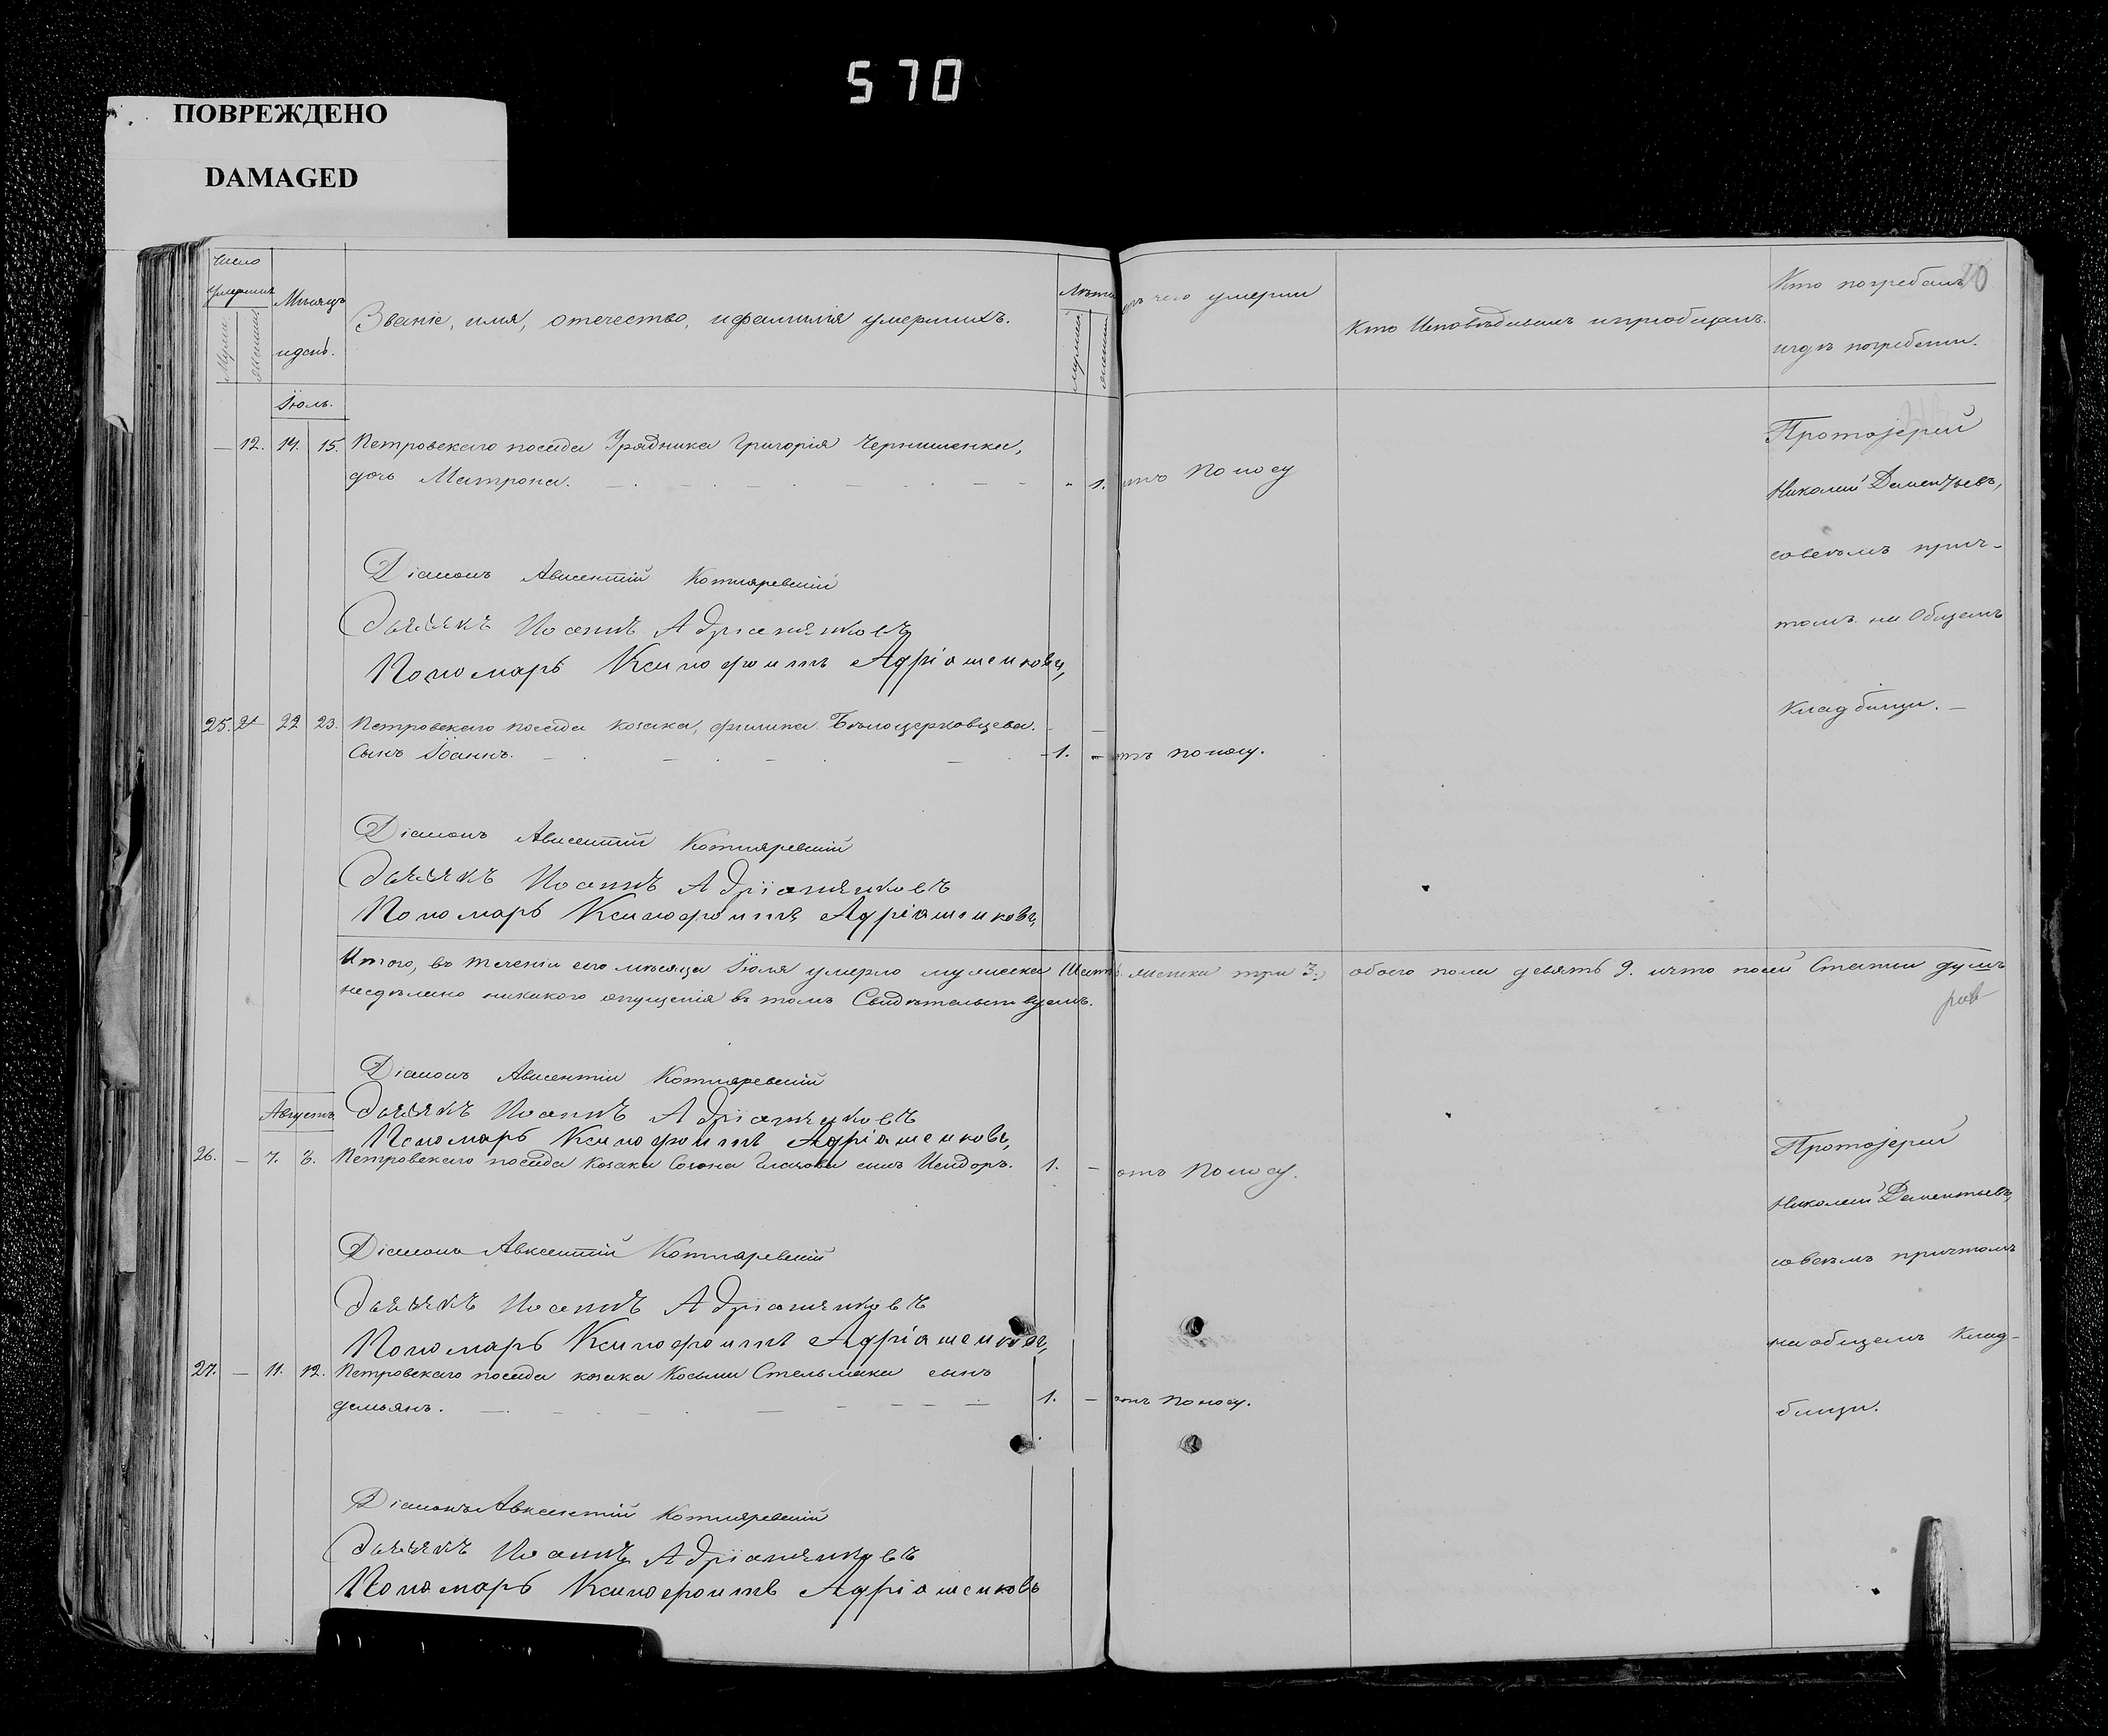 570
ПОВРЕЖДЕНО
DAMAGED
Число умершихъ
Мужеска
женска
Мѣсяцъ и день.
Званіе, имя, отечество, и фамилія умершихъ.
Лѣта
мужска
женска
отъ чего умерли
Кто Исповѣдывалъ и пріобщалъ.
Кто погребалъ
и гдѣ погребены.
Іюль.
— 12. 14. 15. Петровскаго посада Урядника Григорія Чернышенка,
дочь Матрона. 1. отъ поносу
Протоіерей
Николай Дементьевъ,
со всѣмъ прич-
томъ на Общемъ
Кладбищи. —
Діаконъ Авксентій Котляревскій
Дьячекъ Иоаннъ Адріаненковъ
Пономарь Ксинофонтъ Адріаненковъ,
25. 22 23. Петровскаго посада козака, филипа Бѣлоцерковцева.
Сынъ Іоаннъ. 1. — отъ поносу.
Діаконъ Авксентій Котляревскій
Дьячекъ Иоаннъ Адріаненковъ
Пономарь Ксинофонтъ Адріаненковъ,
Итого, въ теченіи сего мѣсяца Іюля умерло мужеска Шесть женска три 3. обоего пола девять 9. и что по сей Статьи
несдѣлано никакого опущенія въ томъ Свидѣтельствуемъ.
Діаконъ Авксентій Котляревскій
Августъ
Дьячекъ Иоаннъ Адріаненковъ
Пономарь Ксинофонтъ Адріаненковъ,
26. — 7. 8. Петровскаго посада козака Созона сынъ Исидоръ. 1. — отъ поносу.
Протоіерей
Николай Дементьевъ,
со всѣмъ причтомъ
на общемъ Клад-
бищи.
Діаконъ Авксентій Котляревскій
Дьячекъ Иоаннъ Адріаненковъ
Пономарь Ксинофонтъ Адріаненковъ,
27. — 11. 12. Петровскаго посада козака Косьмы Стельмака сынъ
демьянъ. 1. — отъ поносу.
Діаконъ Авксентій Котляревскій
Дьячекъ Иоаннъ Адріаненковъ
Пономарь Ксинофонтъ Адріаненковъ